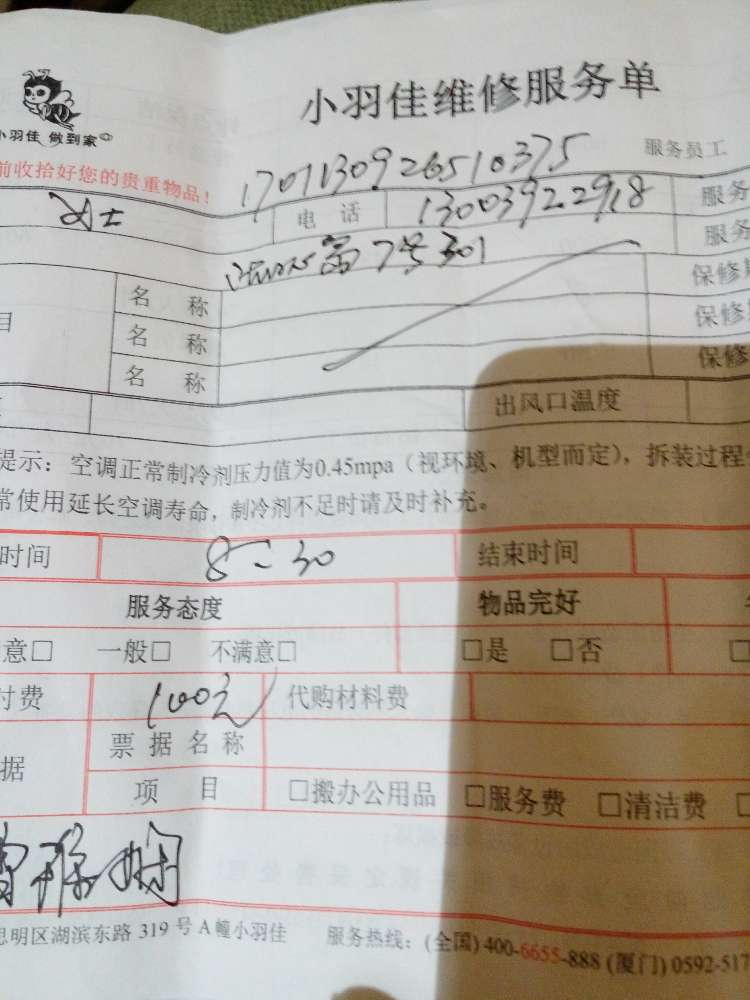 小羽佳维修服务单
小羽佳 做到家
前收拾好您的贵重物品！
1701130926510375
服务员工
女士 电话 13003922918 服务
7号301 服务
名称 保修期
目 名称 保修期
名称 保修
出风口温度
提示：空调正常制冷剂压力值为0.45mpa（视环境、机型而定），拆装过程
常使用延长空调寿命，制冷剂不足时请及时补充。
时间 8-30 结束时间
服务态度 物品完好
意□ 一般□ 不满意□ □是 □否 □
付费 100元 代购材料费
票据名称
据 项目 □搬办公用品 □服务费 □清洁费 □
思明区湖滨东路 319 号 A幢小羽佳 服务热线：(全国) 400-6655-888 (厦门) 0592-517